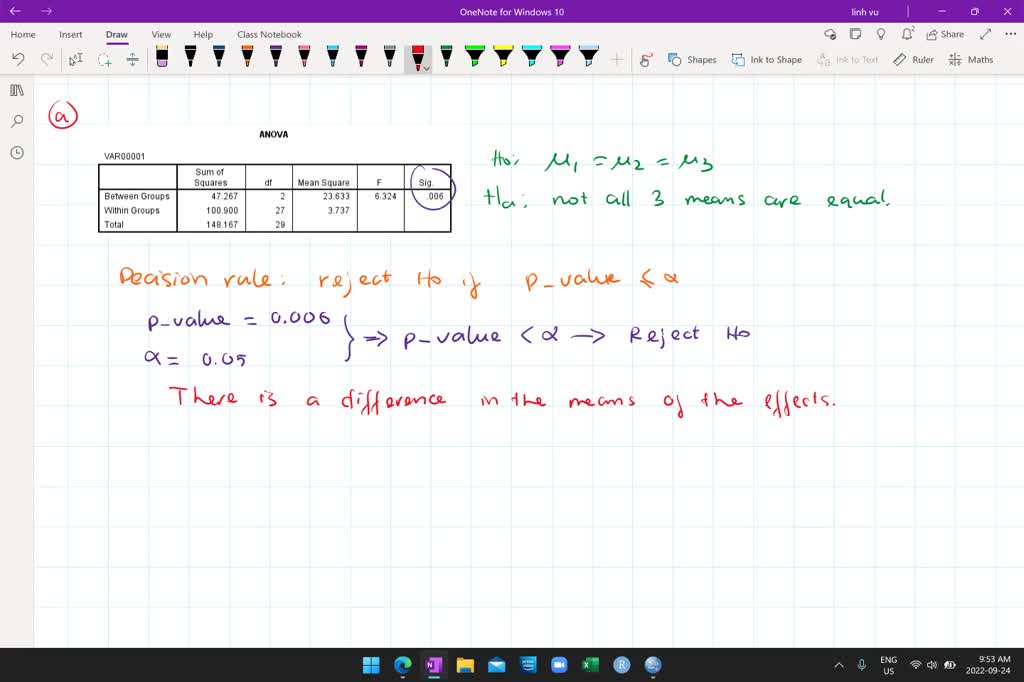 OneNote for Windows 10
linh vu
Home Insert Draw View Help Class Notebook
Share
Shapes Ink to Shape Ink to Text Ruler Maths
a
ANOVA
VAR00001
Sum of Squares df Mean Square F Sig.
Between Groups 47.267 2 23.633 6.324 .006
Within Groups 100.900 27 3.737
Total 148.167 29
Ho: μ1 = μ2 = μ3
Ha: not all 3 means are equal.
Decision rule: reject Ho if p_value ≤ α
p_value = 0.006
α = 0.05
⇒ p_value < α → Reject Ho
There is a difference in the means of the effects.
ENG
US
9:53 AM
2022-09-24